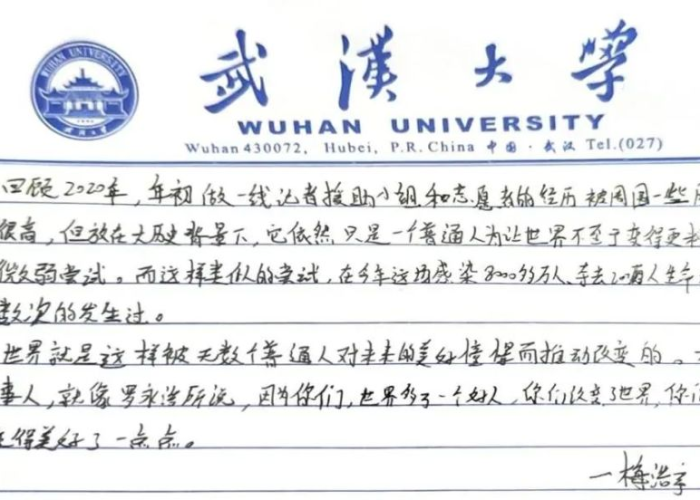 WUHAN UNIVERSITY
武漢大学
武漢大學
WUHAN UNIVERSITY
Wuhan 430072, Hubei, P.R. China 中国·武汉 Tel.(027)
回顾2020年,年初做一线记者援助小组和志愿者的经历被周围一些
很高,但放在大历史背景下,它依然只是一个普通人为让世界不至于变得更
微弱尝试。而这样类似的尝试,在今年这场感染8000多万人、夺去200万人生
数次的发生过。
世界就是这样被无数个普通人对未来的美好憧憬而推动改变的。
事人,就像罗永浩所说,因为你们,世界多了一个好人,你们改变了世界,你们
变得美好了一点点。
一梅浩宇